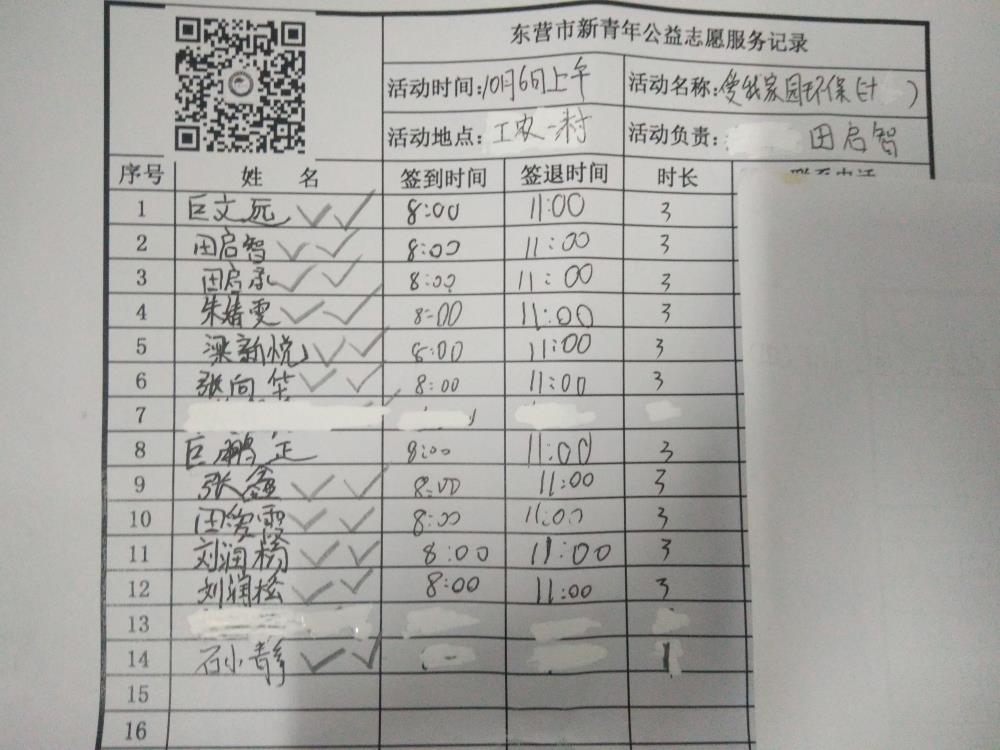 东营市新青年公益志愿服务记录
活动时间:10月6日上午 活动名称:爱我家园环保(计 )
活动地点:工农一村 活动负责: 田启智
序号 姓 名 签到时间 签退时间 时长
1 巨文远 8:00 11:00 3
2 田启智 8:00 11:00 3
3 田启承 8:00 11:00 3
4 朱婧雯 8:00 11:00 3
5 梁新悦 8:00 11:00 3
6 张向华 8:00 11:00 3
7
8 巨鹏 8:00 11:00 3
9 张鑫 8:00 11:00 3
10 田爱霞 8:00 11:00 3
11 刘润杨 8:00 11:00 3
12 刘润 8:00 11:00 3
13
14 石小静 1
15
16